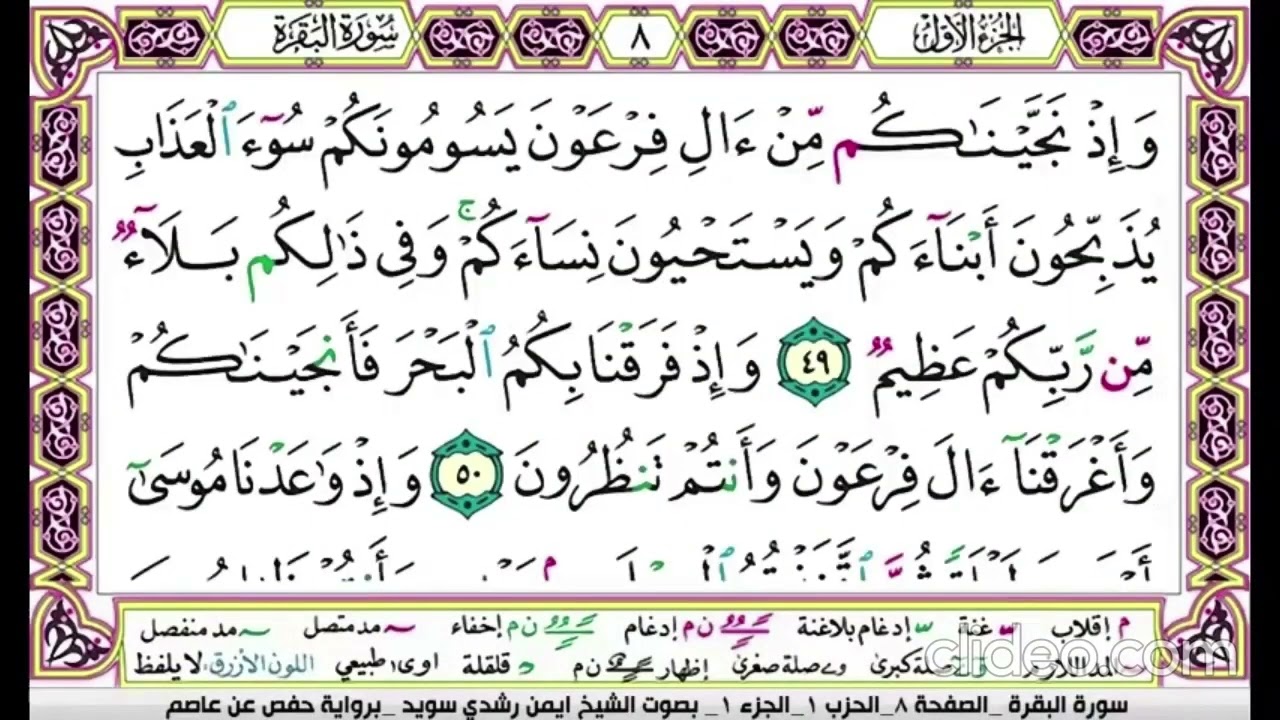 سُورَةُ البَقَرَةِ ٨ الجُزْءُ الأَوَّلُ
وَإِذْ نَجَّيْنَٰكُم مِّنْ ءَالِ فِرْعَوْنَ يَسُومُونَكُمْ سُوٓءَ ٱلْعَذَابِ
يُذَبِّحُونَ أَبْنَآءَكُمْ وَيَسْتَحْيُونَ نِسَآءَكُمْ ۚ وَفِى ذَٰلِكُم بَلَآءٌ
مِّن رَّبِّكُمْ عَظِيمٌ ٤٩ وَإِذْ فَرَقْنَا بِكُمُ ٱلْبَحْرَ فَأَنجَيْنَٰكُمْ
وَأَغْرَقْنَآ ءَالَ فِرْعَوْنَ وَأَنتُمْ تَنظُرُونَ ٥٠ وَإِذْ وَٰعَدْنَا مُوسَىٰٓ
م إقلاب غنة إدغام بلاغنة ن م إدغام ن م إخفاء مد متصل مد منفصل
المد اللازم صلة كبرى و ے صلة صغرى إظهار ن م د قلقلة اوى طبيعي اللون الأزرق لا يلفظ
clideo.com
سورة البقرة _الصفحة ٨_الحزب ١_الجزء ١_ بصوت الشيخ ايمن رشدي سويد _برواية حفص عن عاصم